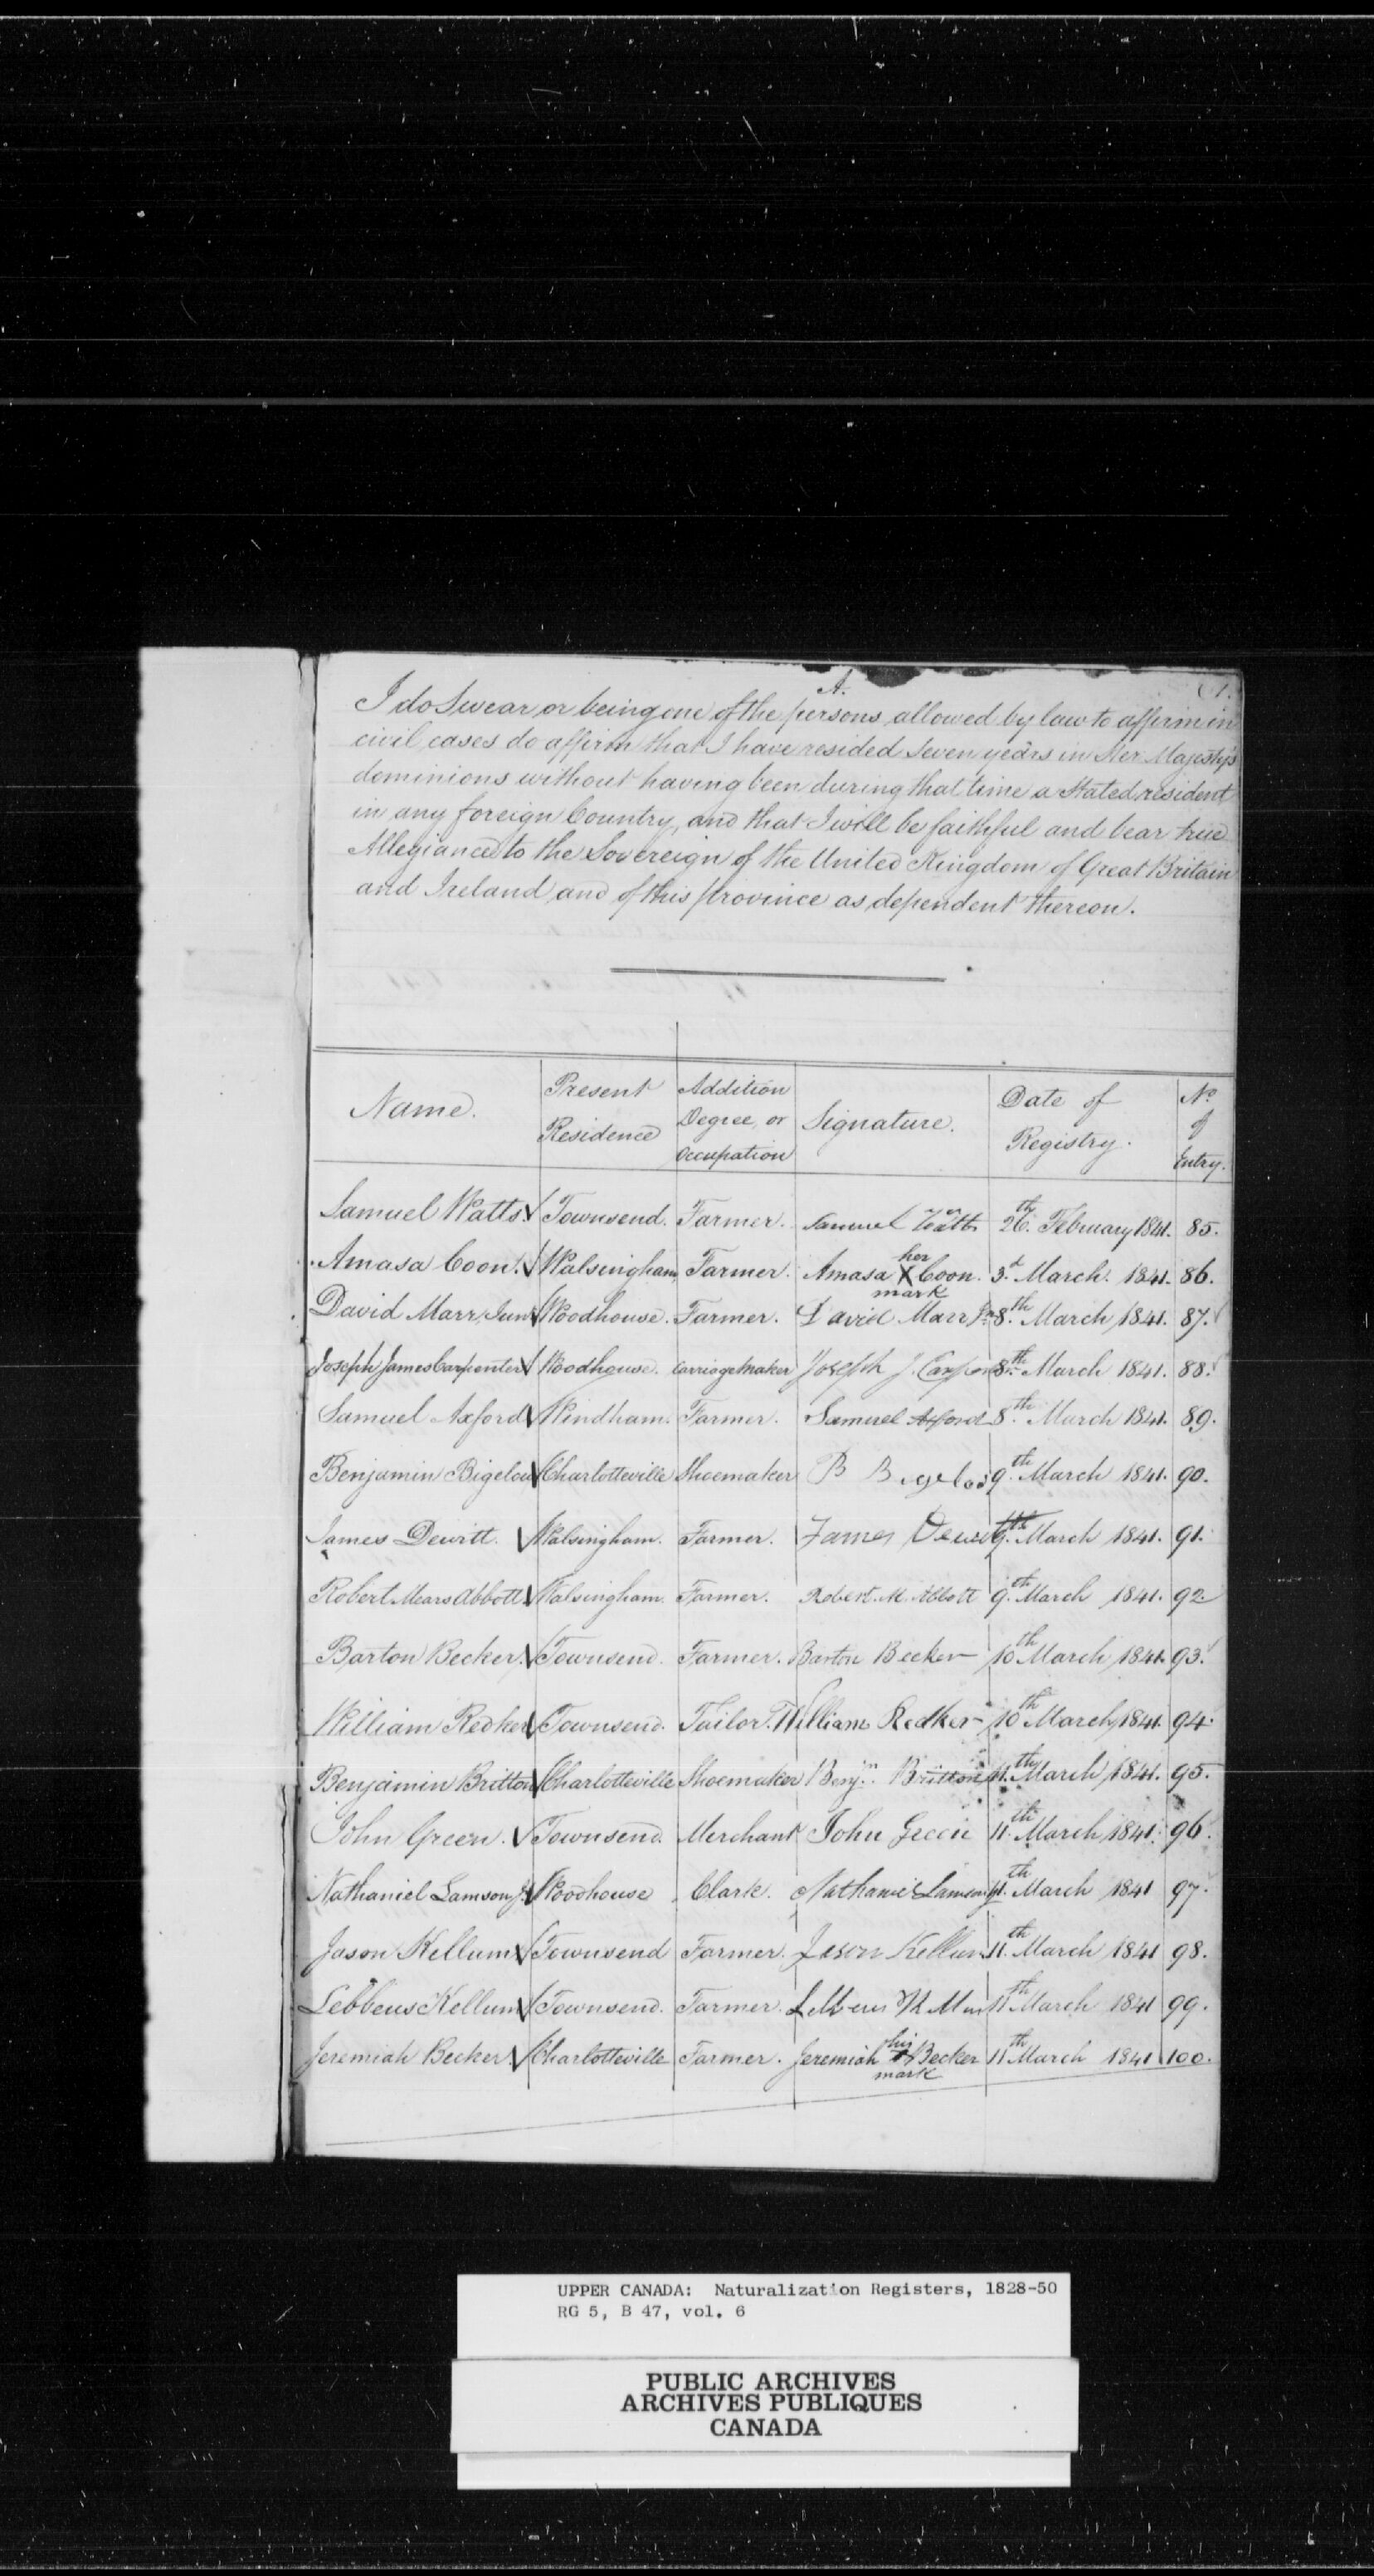 A.
(1.
I do Swear or being one of the persons allowed by law to affirm in
civil cases do affirm that I have resided Seven years in Her Majesty's
dominions without having been during that time a Stated resident
in any foreign Country, and that I will be faithful and bear true
Allegiance to the Sovereign of the United Kingdom of Great Britain
and Ireland and of this province as dependent thereon.
Name. Present Residence Addition Degree, or Occupation Signature. Date of Registry. No. of Entry.
Samuel Watts. Townsend. Farmer. Samuel Watts 26th. February 1841. 85.
Amasa Coon. Walsingham Farmer. Amasa her X mark Coon. 3d. March. 1841. 86.
David Marr, Junr Woodhouse. Farmer. David Marr Jr 8th. March 1841. 87.
Joseph James Carpenter Woodhouse. Carriage Maker Joseph J. Carpen 8th. March 1841. 88.
Samuel Axford Windham. Farmer. Samuel Axford 8th. March 1841. 89.
Benjamin Bigelow Charlotteville Shoemaker B Bigelow 9th. March 1841. 90.
James Dewitt. Walsingham. Farmer. James Dewitt 9th. March 1841. 91.
Robert Mears Abbott Walsingham. Farmer. Robert. M. Abbott 9th. March 1841. 92.
Barton Becker. Townsend. Farmer. Barton Becker 10th March 1841. 93.
William Redker Townsend. Tailor. William Redker 10th March 1841. 94.
Benjamin Britton Charlotteville Shoemaker Benjn. Britton 11th. March 1841. 95.
John Green. Townsend. Merchant John Green 11th. March 1841. 96.
Nathaniel Lamson Jr. Woodhouse Clark. Nathaniel Lamson Jr 11th. March 1841 97.
Jason Kellum Townsend Farmer. Jason Kellum 11th. March 1841 98.
Lebbeus Kellum Townsend. Farmer. 11th March 1841 99.
Jeremiah Becker. Charlotteville Farmer. Jeremiah his X mark Becker 11th March 1841 100.
UPPER CANADA: Naturalization Registers, 1828-50
RG 5, B 47, vol. 6
PUBLIC ARCHIVES
ARCHIVES PUBLIQUES
CANADA